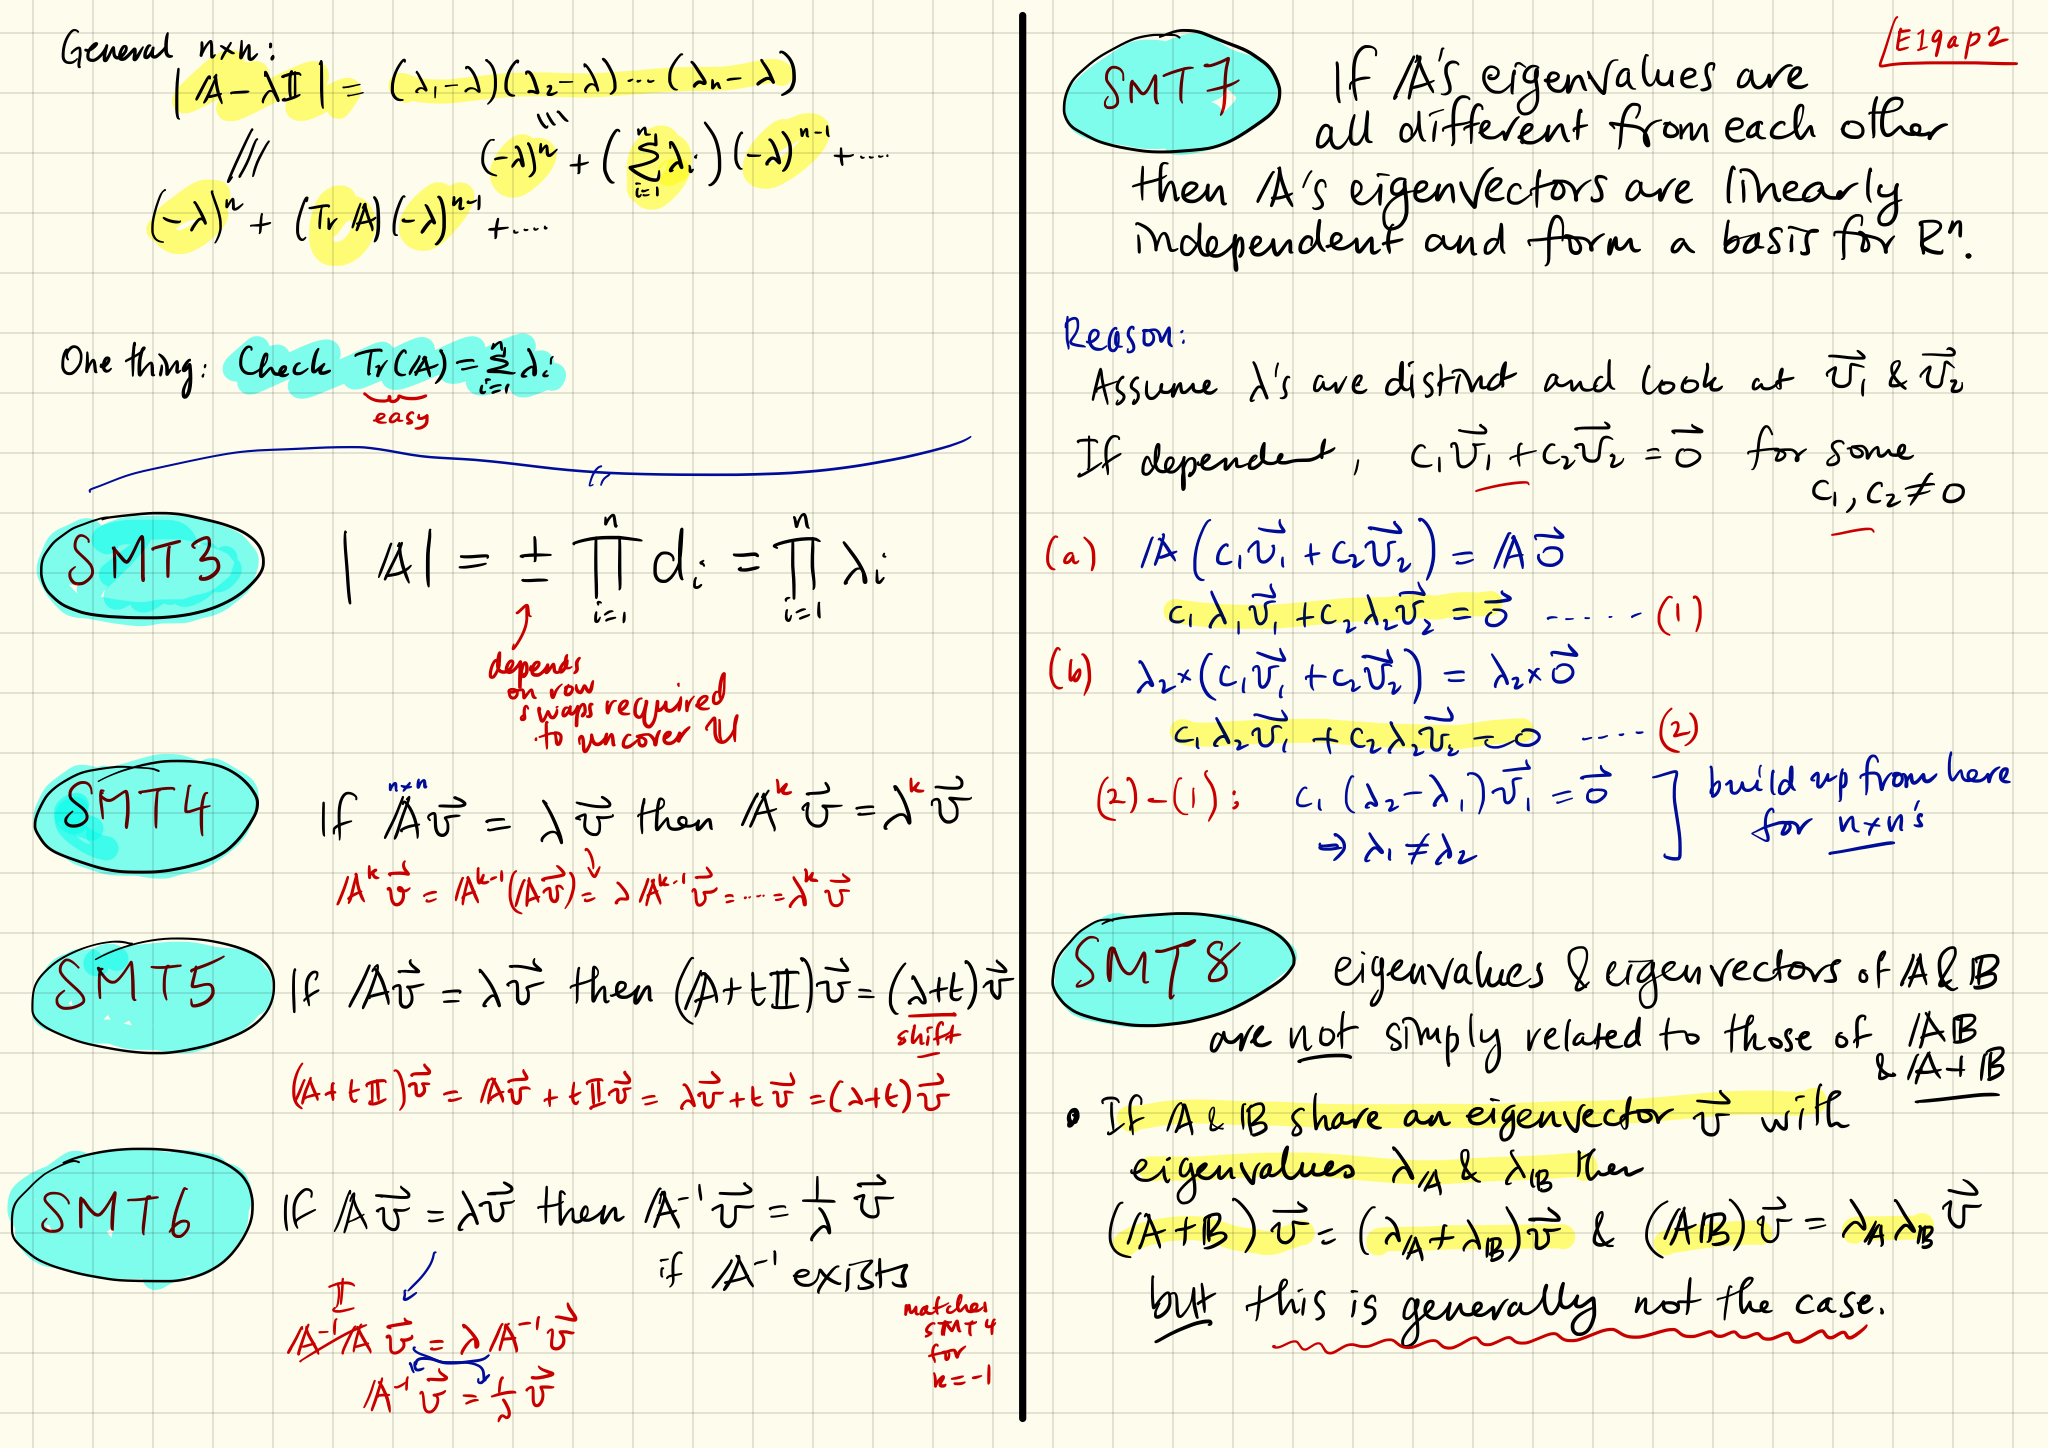 General n×n:
|𝔸 - λ𝕀| = (λ₁-λ)(λ₂-λ)···(λₙ-λ)
(-λ)ⁿ + (∑ᵢ₌₁ⁿ λᵢ)(-λ)ⁿ⁻¹ + ····
(-λ)ⁿ + (Tr 𝔸)(-λ)ⁿ⁻¹ + ····
One thing: Check Tr(𝔸) = ∑ᵢ₌₁ⁿ λᵢ
easy
SMT3
|𝔸| = ± ∏ᵢ₌₁ⁿ dᵢ = ∏ᵢ₌₁ⁿ λᵢ
depends
on row
swaps required
to uncover U
SMT4
n×n
If 𝔸v⃗ = λv⃗ then 𝔸ᵏv⃗ = λᵏv⃗
𝔸ᵏv⃗ = 𝔸ᵏ⁻¹(𝔸v⃗) = λ𝔸ᵏ⁻¹v⃗ = ···· = λᵏv⃗
SMT5
If 𝔸v⃗ = λv⃗ then (𝔸+t𝕀)v⃗ = (λ+t)v⃗
shift
(𝔸+t𝕀)v⃗ = 𝔸v⃗ + t𝕀v⃗ = λv⃗ + tv⃗ = (λ+t)v⃗
SMT6
If 𝔸v⃗ = λv⃗ then 𝔸⁻¹v⃗ = 1/λ v⃗
if 𝔸⁻¹ exists
matches
SMT4
for
k=-1
𝕀
𝔸⁻¹𝔸v⃗ = λ𝔸⁻¹v⃗
𝔸⁻¹v⃗ = 1/λ v⃗
E19ap2
SMT7
If 𝔸's eigenvalues are
all different from each other
then 𝔸's eigenvectors are linearly
independent and form a basis for Rⁿ.
Reason:
Assume λ's are distinct and look at v⃗₁ & v⃗₂
If dependent, c₁v⃗₁ + c₂v⃗₂ = 0⃗ for some
c₁, c₂ ≠ 0
(a) 𝔸(c₁v⃗₁ + c₂v⃗₂) = 𝔸0⃗
c₁λ₁v⃗₁ + c₂λ₂v⃗₂ = 0⃗ ······ (1)
(b) λ₂×(c₁v⃗₁ + c₂v⃗₂) = λ₂×0⃗
c₁λ₂v⃗₁ + c₂λ₂v⃗₂ = 0 ····· (2)
(2)-(1): c₁(λ₂-λ₁)v⃗₁ = 0⃗
⇒ λ₁ ≠ λ₂
build up from here
for n×n's
SMT8
eigenvalues & eigenvectors of 𝔸 & 𝔹
are not simply related to those of 𝔸𝔹
& 𝔸+𝔹
• If 𝔸 & 𝔹 share an eigenvector v⃗ with
eigenvalues λ_𝔸 & λ_𝔹 then
(𝔸+𝔹)v⃗ = (λ_𝔸+λ_𝔹)v⃗ & (𝔸𝔹)v⃗ = λ_𝔸λ_𝔹v⃗
but this is generally not the case.